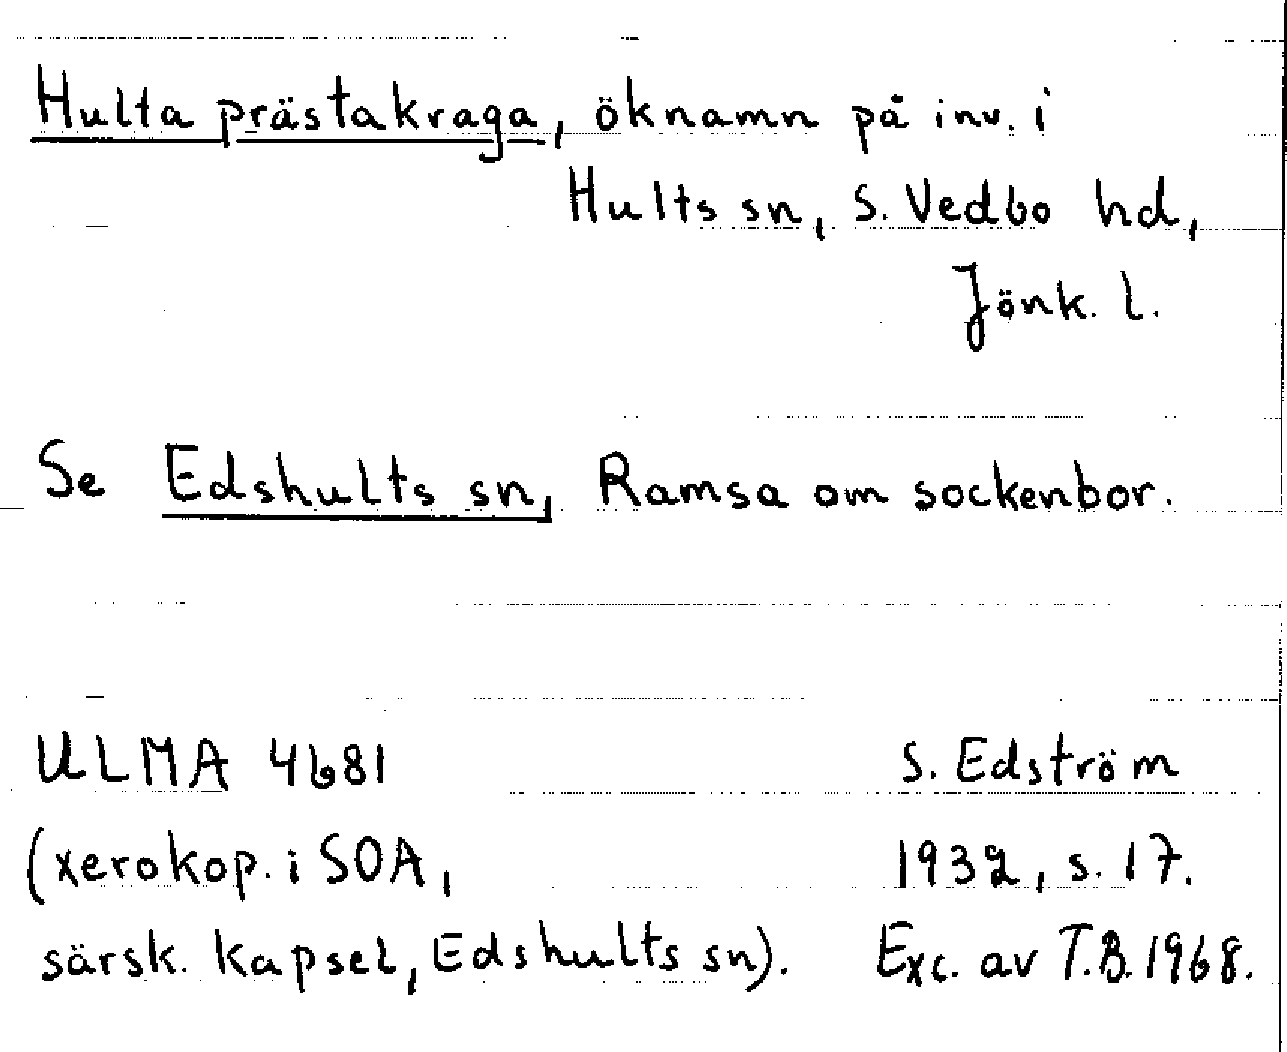 Hulta prästakraga, öknamn på inv. i
Hults sn, S. Vedbo hd,
Jönk. l.
Se Edshults sn, Ramsa om sockenbor.
ULMA 4681 S. Edström
(xerokop. i SOA, 1932, s. 17.
särsk. kapsel, Edshults sn). Exc. av T.B. 1968.